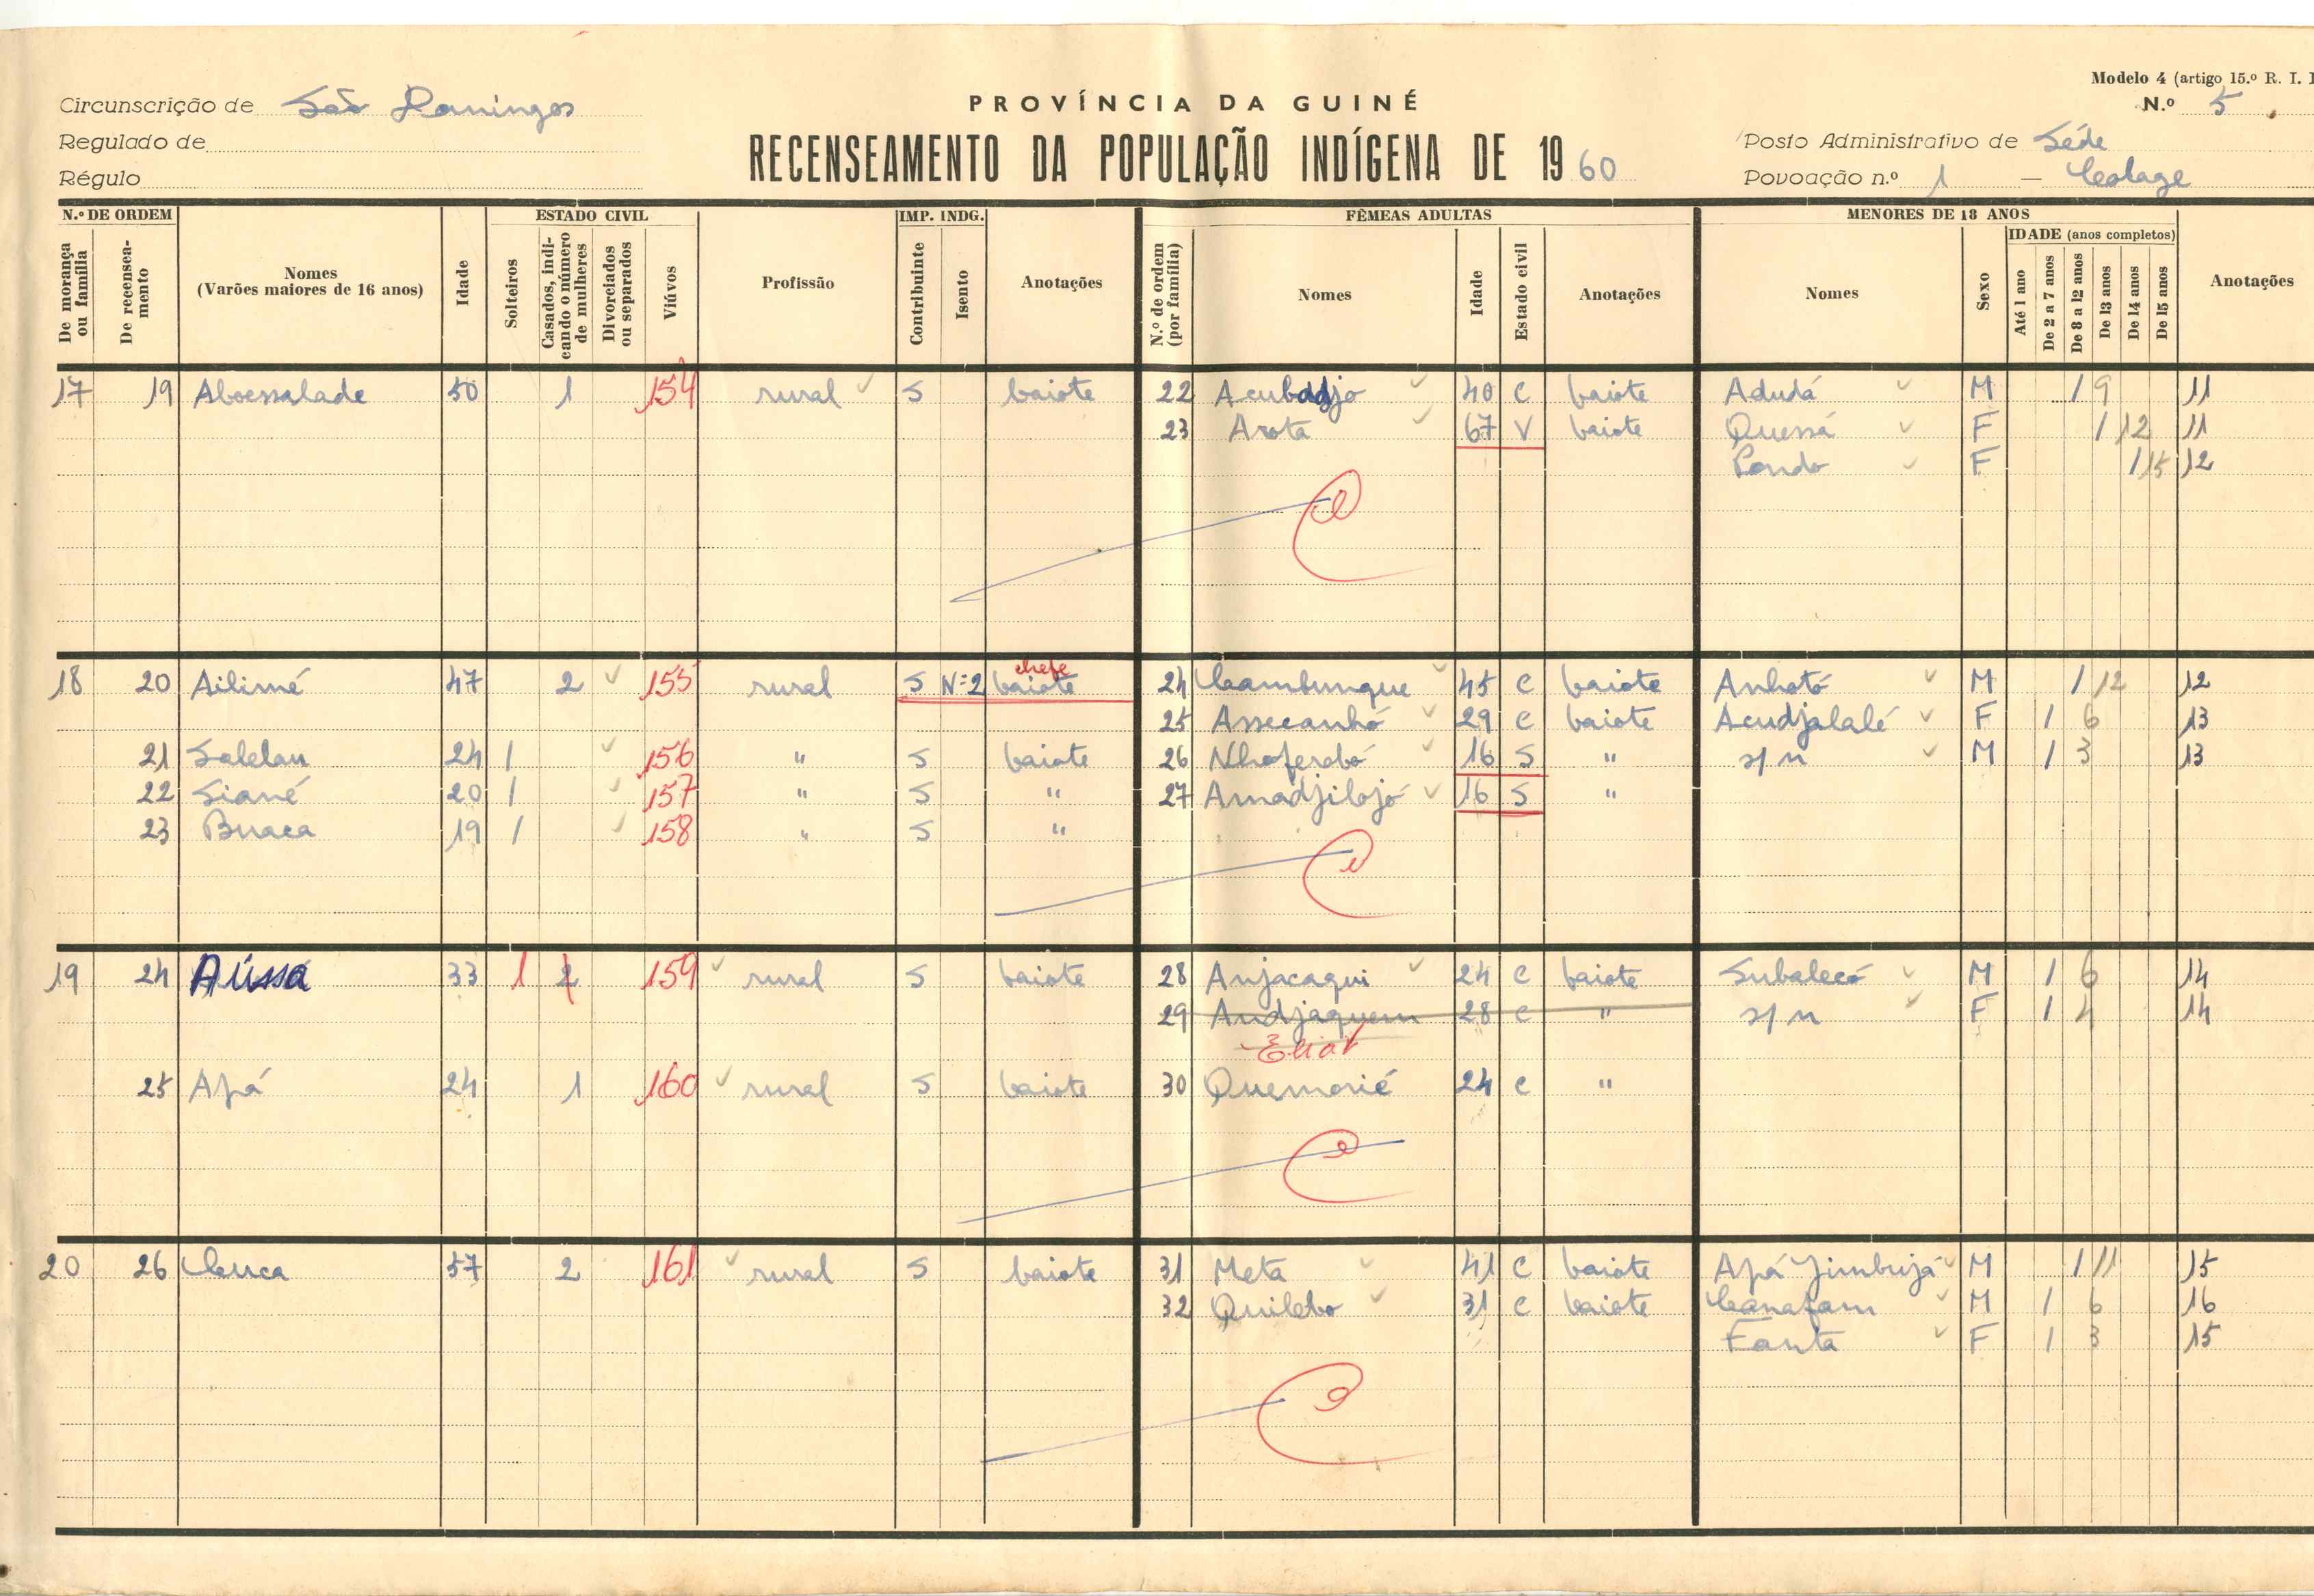 Modelo 4 (artigo 15.º R. I. I
Circunscrição de São Domingos
PROVÍNCIA DA GUINÉ
N.º 5
Regulado de
RECENSEAMENTO DA POPULAÇÃO INDÍGENA DE 1960
Posto Administrativo de Séde
Régulo
Povoação n.º 1 — Colage
N.º DE ORDEM ESTADO CIVIL IMP. INDG. FÊMEAS ADULTAS MENORES DE 18 ANOS
De morança ou família
De recenseamento
Nomes (Varões maiores de 16 anos)
Idade
Solteiros
Casados, indicando o número de mulheres
Divorciados ou separados
Viúvos
Profissão
Contribuinte
Isento
Anotações
N.º de ordem (por família)
Nomes
Idade
Estado civil
Anotações
Nomes
Sexo
IDADE (anos completos)
Até 1 ano
De 2 a 7 anos
De 8 a 12 anos
De 13 anos
De 14 anos
De 15 anos
Anotações
17 19 Aboessalade 50 1 154 rural S baiote 22 Acubadjo 40 C baiote Adudá M 1 9 11
23 Arota 67 V baiote Quessá F 1 12 11
Pondo F 1 15 12
chefe
18 20 Ailimé 47 2 155 rural S N=2 baiote 24 Cambunque 45 C baiote Anhotó M 1 12 12
25 Assecanhó 29 C baiote Acudjalalé F 1 6 13
21 Salelau 24 1 156 " S baiote 26 Nhaferobó 16 S " s/n M 1 3 13
22 Siané 20 1 157 " S " 27 Amadjilojó 16 S "
23 Buaca 19 1 158 " S "
19 24 Aússa 33 1 2 159 rural S baiote 28 Anjacaqui 24 C baiote Subalecó M 1 6 14
29 Andjaquem 28 C " s/n F 1 4 14
25 Apá 24 1 160 rural S baiote 30 Quemorié 24 C "
20 26 Cuca 57 2 161 rural S baiote 31 Meta 41 C baiote Apá Jimbujá M 1 11 15
32 Quilebo 31 C baiote Canafam M 1 6 16
Fanta F 1 3 15